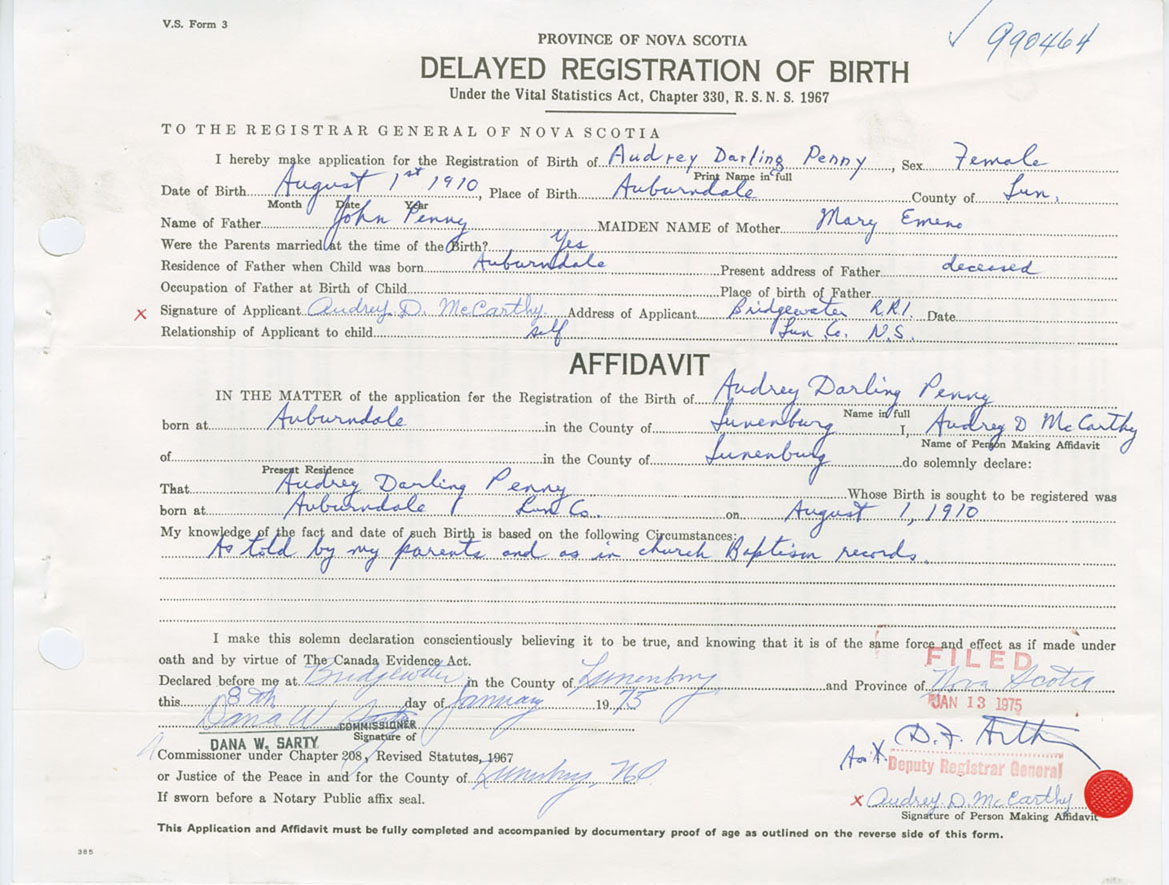 V.S. Form 3
990464
PROVINCE OF NOVA SCOTIA
DELAYED REGISTRATION OF BIRTH
Under the Vital Statistics Act, Chapter 330, R.S.N.S. 1967
TO THE REGISTRAR GENERAL OF NOVA SCOTIA
I hereby make application for the Registration of Birth of Audrey Darling Penny, Sex Female
Print Name in full
Date of Birth August 1st 1910, Place of Birth Auburndale County of Lun.
Month Date Year
Name of Father John Penny MAIDEN NAME of Mother Mary Emeno
Were the Parents married at the time of the Birth? Yes
Residence of Father when Child was born Auburndale Present address of Father deceased
Occupation of Father at Birth of Child Place of birth of Father
x Signature of Applicant Audrey D. McCarthy Address of Applicant Bridgewater R.R.1. Date
Relationship of Applicant to child self Lun Co. N.S.
AFFIDAVIT
IN THE MATTER of the application for the Registration of the Birth of Audrey Darling Penny
Name in full
born at Auburndale in the County of Lunenburg I, Audrey D McCarthy
Name of Person Making Affidavit
of in the County of Lunenburg do solemnly declare:
Present Residence
That Audrey Darling Penny Whose Birth is sought to be registered was
born at Auburndale Lun Co. on August 1, 1910
My knowledge of the fact and date of such Birth is based on the following Circumstances:
As told by my parents and as in church Baptism records.
I make this solemn declaration conscientiously believing it to be true, and knowing that it is of the same force and effect as if made under
oath and by virtue of The Canada Evidence Act.
FILED
Declared before me at Bridgewater in the County of Lunenburg and Province of Nova Scotia
this 8th day of January 1975
JAN 13 1975
Dana W Sarty
COMMISSIONER
Signature of
DANA W. SARTY
A Commissioner under Chapter 208, Revised Statutes, 1967
D.F. Arth
Deputy Registrar General
or Justice of the Peace in and for the County of Lunenburg
x Audrey D. McCarthy
If sworn before a Notary Public affix seal.
Signature of Person Making Affidavit
This Application and Affidavit must be fully completed and accompanied by documentary proof of age as outlined on the reverse side of this form.
385